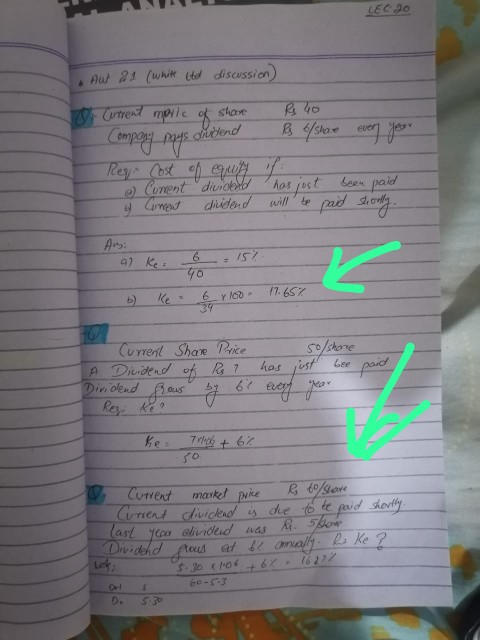 LEC-20
• Aut 21 (White Ltd discussion)
Q: Current mprice of share Rs 40
Company pays dividend Rs 6/share every year
Req:- Cost of equity if:
a) Current dividend has just been paid
b) Current dividend will be paid shortly.
Ans:
a) Ke = 6/40 = 15%
b) Ke = 6/34 x 100 = 17.65%
Q
Current Share Price 50/share
A Dividend of Rs 7 has just bee paid
Dividend grows by 6% every year
Req:- Ke?
Ke = 7x1.06/50 + 6%
Q Current market price Rs 60/share
Current dividend is due to be paid shortly
Last year dividend was Rs. 5/share
Dividend grows at 6% annually. Rs Ke?
5.30 x 1.06/60-5.3 + 6% = 16.27%
Do 5.30